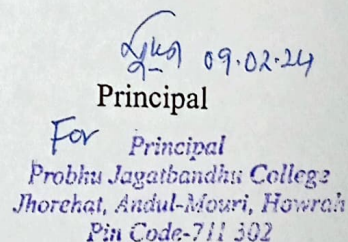 09.02.24
Principal
For Principal
Probhu Jagatbandhu College
Jhorehat, Andul-Mouri, Howrah
Pin Code-711 302